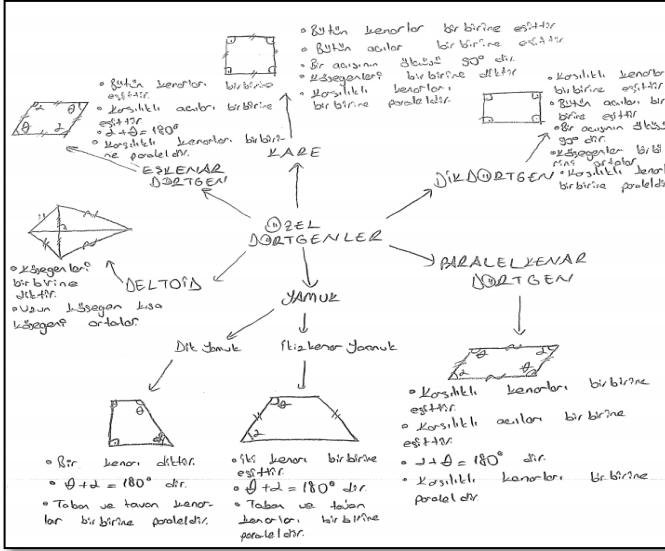 • Bütün kenarlar birbirine eşittir.
• Bütün açılar birbirine eşittir.
• Bir açısının ölçüsü 90° dir.
• Köşegenleri birbirine diktir.
• Karşılıklı kenarları birbirine paraleldir.
KARE
• Bütün kenarları birbirine
eşittir.
• Karşılıklı açıları birbirine
eşittir.
• α+θ=180°
• Karşılıklı kenarları birbiri-
ne paraleldir.
EŞKENAR
DÖRTGEN
• Karşılıklı kenarlar
birbirine eşittir.
• Bütün açıları bir-
birine eşittir.
• Bir açısının ölçüsü
90° dir.
• Köşegenler birbi
rini ortalar
• Karşılıklı
birbirine paraleldir
DİKDÖRTGEN
ÖZEL
DÖRTGENLER
DELTOİD
• Köşegenleri
birbirine
diktir.
• Uzun köşegen kısa
köşegeni ortalar.
YAMUK
Dik Yamuk
İkizkenar Yamuk
PARALELKENAR
DÖRTGEN
• Bir kenarı diktir.
• θ+α=180° dir.
• Taban ve tavan kenar-
lar birbirine paraleldir.
• İki kenarı birbirine
eşittir.
• θ+α=180° dir.
• Taban ve tavan
kenarları birbirine
paraleldir.
• Karşılıklı kenarları birbirine
eşittir.
• Karşılıklı açıları birbirine
eşittir.
• α+θ=180° dir.
• Karşılıklı kenarları birbirine
paraleldir.